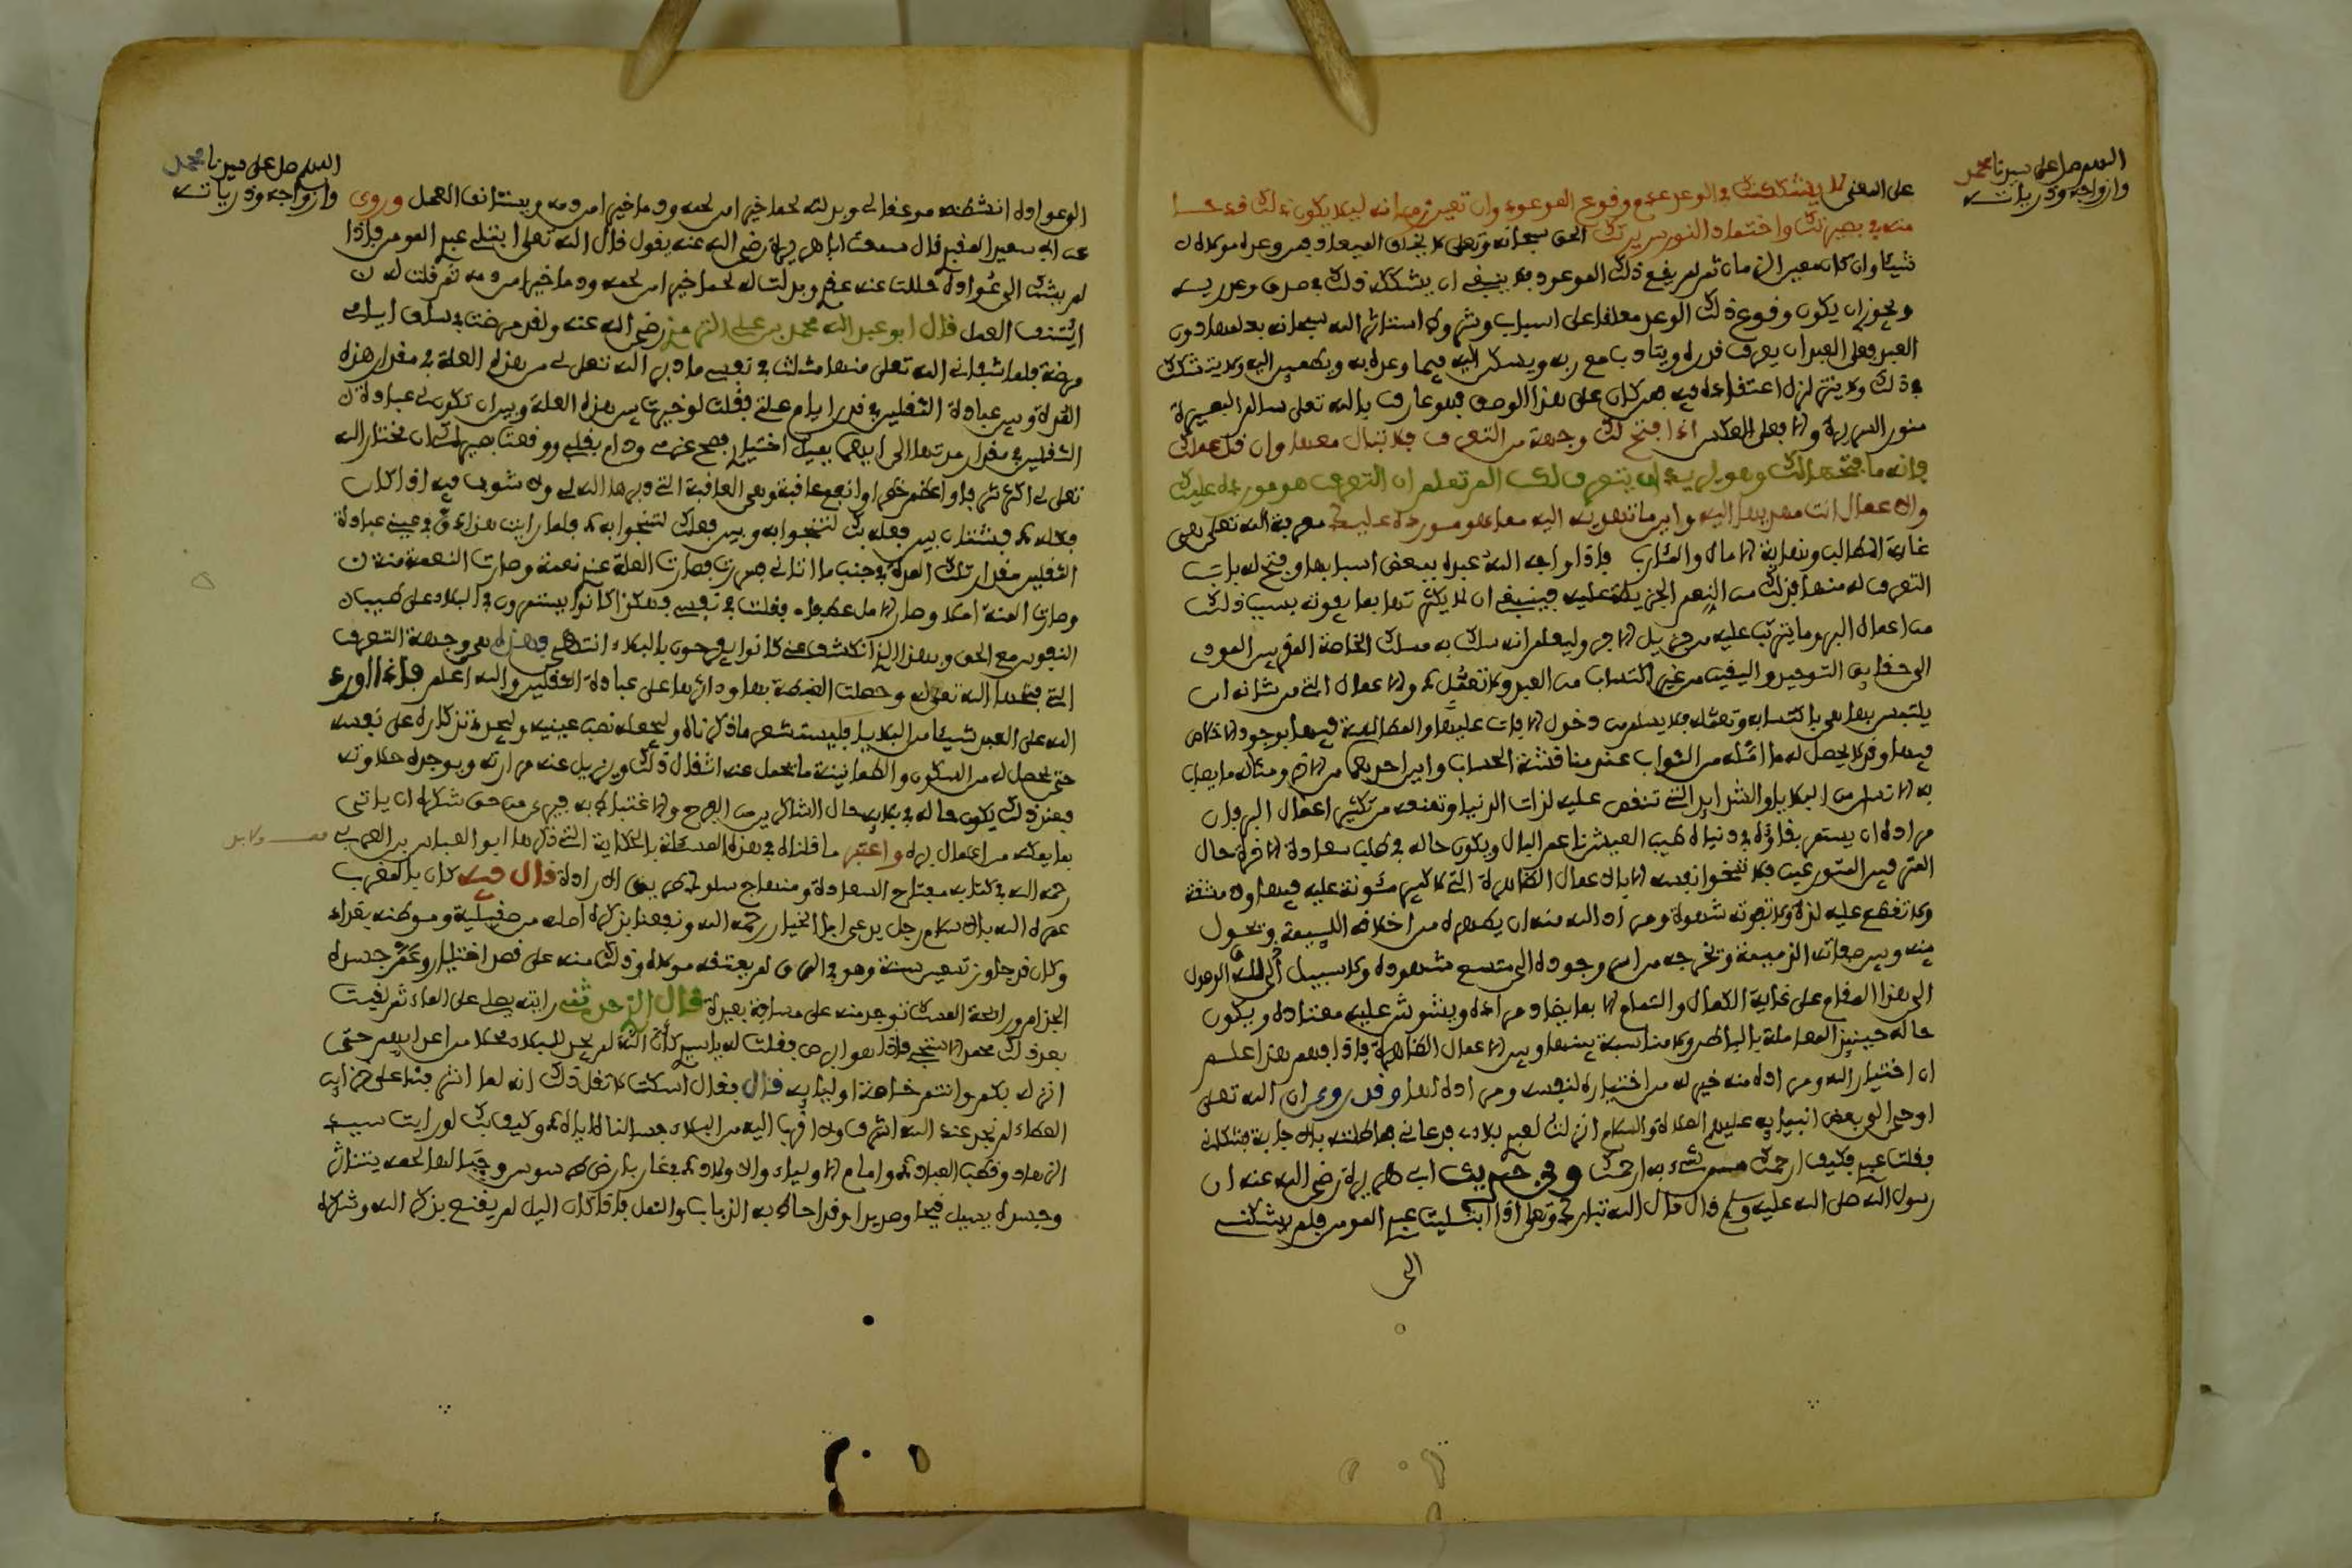 اللهم صل على سيدنا محمد
وازواجه وذرياته
على المغنى لا يشككنك في الوعد عدم وقوع الموعود وان تعين زمانه ليلا يكون ذلك قدحا
منه في بصيرتك واخمادا لنور سريرتك الحق سبحانه وتعلى لا يخلف الميعاد فمن وعده مولاه
شيئا وان كان معين الزمان ثم لم يقع ذلك الموعود فلا ينبغي ان يشككه ذلك في صدق وعد ربه
ويجوز ان يكون وقوع ذلك الوعد معلقا على اسباب وشروط استاثر الله سبحانه بعلمها دون
العبد فعلى العبد ان يعرف قدره ويتادب مع ربه ويسكن اليه فيما وعده به ويطمين اليه ولا يتشكك
في ذلك ولا يتزلزل اعتقاده فيه فمن كان على هذا الوصف فهو عارف بالله تعلى سالم البصيرة
منور السريرة والا فعلى العكس اذا فتح لك وجهة من التعرف فلا تبال معها وان قل عملك
فانه ما فتحها لك وهو يريد ان يتعرف لك الم تعلم ان التعرف هو مورده عليك
والاعمال انت مهديها اليه واين ما تهديه اليه مما هو مورده عليك معرفة الله تعلى هي
غاية المطالب ونهاية الامال والمئارب فاذا واجه الله عبده ببعض اسبابها وفتح له باب
التعرف له منها فذلك من النعم الجزيلة عليه فينبغي ان لا يكترث بما يفوته بسبب ذلك
من اعمال البر وما يترتب عليه من جزيل الاجر وليعلم انه سلك به مسلك الخاصة المقربين المودى
الى حقايق التوحيد واليقين من غير اكتساب من العبد ولا تعمل والاعمال التي من شانه ان
يلتبس بها هي باكتسابه وتعمله فلا يسلم من دخول الافات عليها والمطالبة فيها بوجود الاخلاص
فيها وقد لا يحصل له ما امله من الثواب عند مناقشة الحساب واين احدهما من الاخر ومثاله ما يصاب
به الانسان من البلايا والشدايد التي تنغص عليه لذات الدنيا وتمنعه من تكثير اعمال البر فان
مراده ان يستمر بقاؤه في دنياه طيب العيش ناعم البال ويكون حاله في طلب سعادة الاخرة حال
المترفين المتورعين فلا تسخوا نفسه الا بالاعمال الظاهرة التي لا كبير مئونة عليه فيها ولا مشقة
ولا تقطع عليه لذة ولا تفوته شهوة ومراد الله منه ان يطهره من اخلاقه اللئيمة ويحول
بينه وبين صفاته الذميمة ويخرجه من اسر وجوده الى متسع شهوده ولا سبيل الى الوصول
الى هذا المقام على غاية الكمال والتمام الا بما يضاد مراده ويشوش عليه معتاده ويكون
حاله حينيذ المعاملة بالباطن ولا مناسبة بينها وبين الاعمال الظاهرة فاذا فهم هذا علم
ان اختيار الله ومراده منه خير له من اختياره لنفسه ومراده لها وقد روى ان الله تعلى
اوحى الى بعض انبيايه عليهم الصلاة والسلام انزلت لعبدي بلاءى فدعاني فماطلته بالاجابة فشكاني
فقلت عبدي فكيف ارحمك من شيء به ارحمك وفي حديث ابي هريرة رضي الله عنه ان
رسول الله صلى الله عليه وسلم قال قال الله تبارك وتعلى اذا ابتليت عبدي المومن فلم يشكني
الى
اللهم صل على سيدنا محمد
وازواجه وذرياته
الى عواده انشطته من عقالي وبدلته لحما خيرا من لحمه ودما خيرا من دمه ويستانف العمل وروى
عن ابي سعيد المقبري قال سمعت ابا هريرة رضي الله عنه يقول قال الله تعلى ابتلي عبدي المومن فاذا
لم يشك الى عواده حللت عنه عقدي وبدلت له لحما خيرا من لحمه ودما خيرا من دمه ثم قلت له
ايتنف العمل قال ابو عبد الله محمد بن علي الترمذي رضي الله عنه ولقد مرضت في سالف ايامي
مرضة فلما شفاني الله تعلى منها مثلت في نفسي ما دبر الله تعلى لي من هذه العلة في مقدار هذه
المدة وبين عبادة الثقلين في قدر ايام علتي فقلت لو خيرت بين هذه العلة وبين ان تكون لي عبادة
الثقلين في مقدار مدتها الى ايهما يميل اختياري فصح عزمي ودام يقيني ووقعت بصيرتي ان مختار الله
تعلى لي اكثر شرفا واعظم خطرا وانفع عاقبة وهي العاقبة التي دبرها الله لي ولا شوب فيه اذا كان
فعله فشتان بين فعله بك لتنجوا به وبين فعلك لتنجوا به فلما رايت هذا دق في عيني عبادة
الثقلين مقدار تلك المدة في جنب ما اتاني فصارت العلة عندي نعمة وصارت النعمة منة
وصارت المنة املا وصار الامل عطفا فقلت في نفسي فهكذا كانوا يستمرون في البلاء على طيبان
النفوس مع الحق وبهذا الذي انكشف عني كانوا يفرحون بالبلاء انتهى فهذه هي وجهة التعرف
التي فتحها الله تعلى له وحصلت الغبطة بها واثرها على عبادة الثقلين والله اعلم فاذا اورد
الله على العبد شيئا من البلايا فليستشعر ما ذكرناه وليجعله نصب عينيه وليجدد تذكاره على نفسه
حتى يحصل له من السكون والطمانينة ما يحمل عنه اثقال ذلك ويزيل عنه مرارته ويوجده حلاوته
فعند ذلك يكون حاله في بلايه حال الشاكرين من الفرح والاغتباط به فيرى من حق شكره ان ياتي
بما يمكنه من اعمال بره واعتبر ما قلناه في هذه المسئلة بالحكاية التي ذكرها ابو العباس بن العريف
رحمه الله في كتابه مفتاح السعادة ومنهاج سلوك طريق الارادة قال فيه كان بالمغرب
عمره الله بالاسلام رجل يدعى ابا الخيار رحمه الله ونفعنا بذكره اصله من صقيلية وموطنه بغداد
وكان قد جاوز تسعين سنة وهو في الرق لم يعتقه مولاه وذلك منه على قصد اختيار وعم جسده
الجذام ورائحة المسك توجد منه على مسافة بعيدة قال الذي حدثني رايته يصلي على الماء ثم لقيت
بعد ذلك محمدا الاسفنجي فاذا هو ابرص فقلت له يا سيدي كان الله لم يجد للبلاء محلا من اعدايه حتى
انزله بكم وانتم خاصة اوليايه قال فقال اسكت لا تقل ذلك انه لما اشرفنا على خزاين
العطاء لم نجد عند الله اشرف ولا اقرب اليه من البلاء فسالناه اياه وكيف بك لو رايت سيد
الزهاد وقطب العباد وامام الاولياء والاوتاد في غار بارض طرسوس وجبالها لحمه يتناثر
وجسده يسيل قيحا وصديدا وقد احاط به الذباب والنمل فاذا كان اليل لم يقنع بذكر الله وشكره